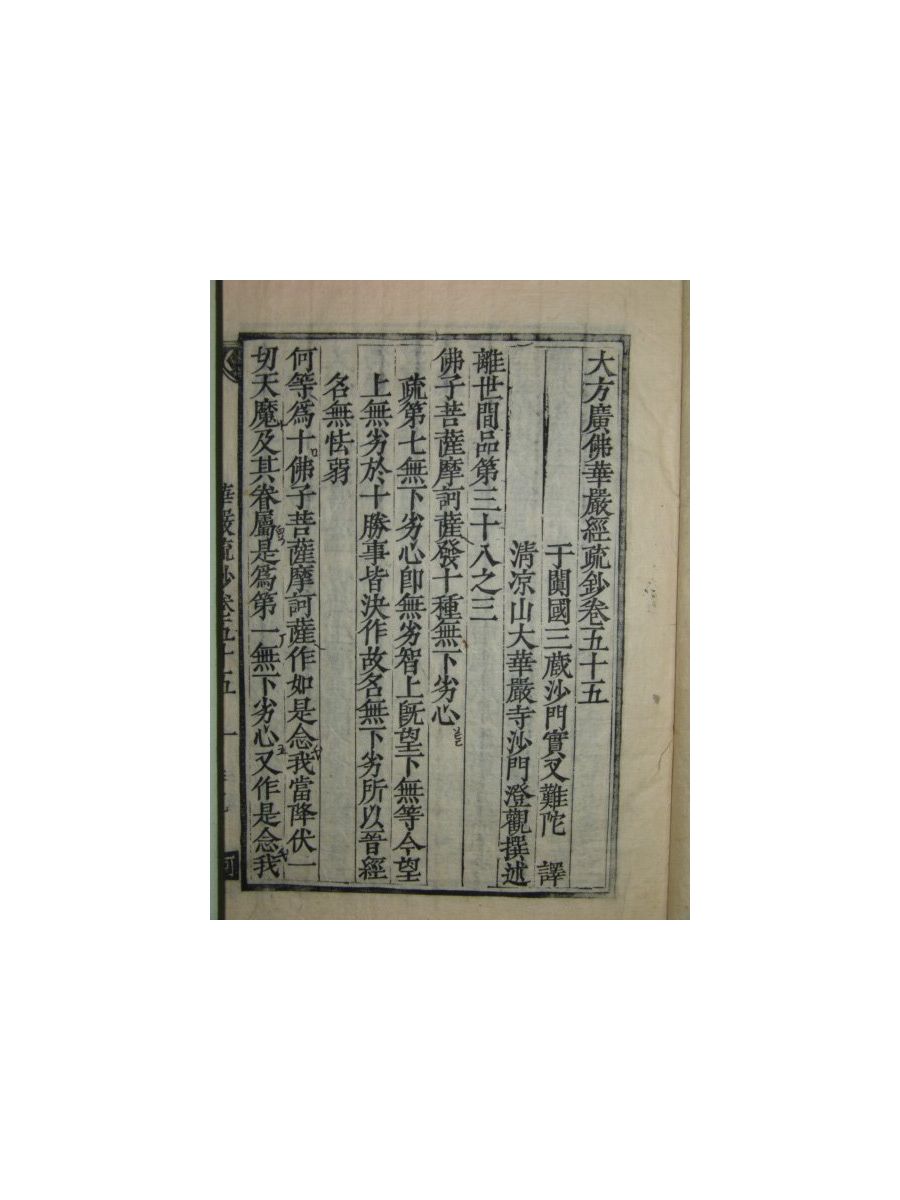 大方廣佛華嚴經疏鈔卷五十五
于闐國三藏沙門實叉難陀 譯
清凉山大華嚴寺沙門澄觀撰述
離世間品第三十八之三
佛子菩薩摩訶薩發十種無下劣心
疏第七無下劣心卽無劣智上旣望下無等今望
上無劣於十勝事皆決作故名無下劣所以晉經
名無怯弱
何等爲十佛子菩薩摩訶薩作如是念我當降伏一
切天魔及其眷屬是爲第一無下劣心又作是念我
華嚴疏鈔卷五十五 一